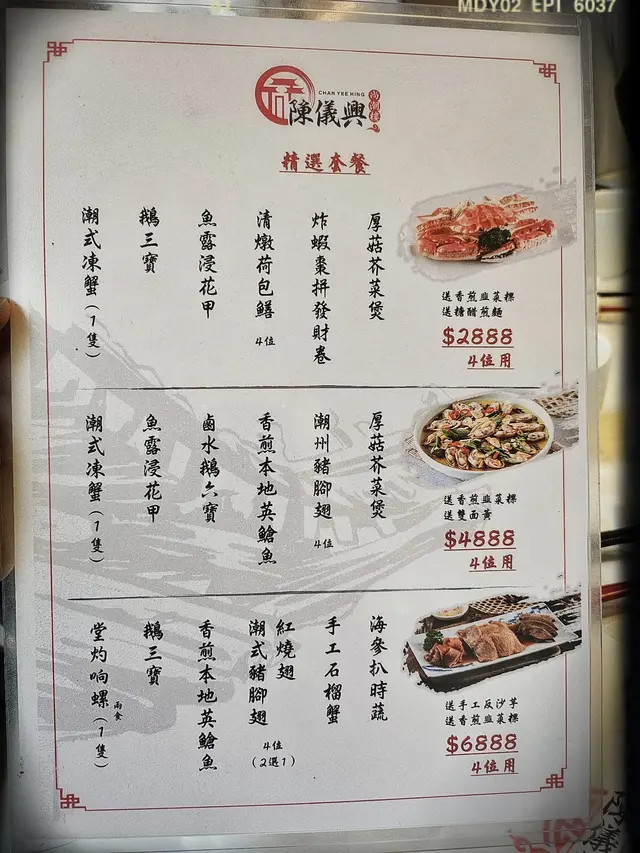 MDY02 EPI 6037
CHAN YEE HING
陳儀興
尚潮樓
精選套餐
潮式凍蟹(1隻)
鵝三寶
魚露浸花甲
清燉荷包鱔 4位
炸蝦棗拼發財卷
厚菇芥菜煲
送香煎韭菜粿
送糖醋煎麵
$2888
4位用
潮式凍蟹(1隻)
魚露浸花甲
鹵水鵝六寶
香煎本地英鯧魚
潮州豬腳翅 4位
厚菇芥菜煲
送香煎韭菜粿
送雙面黃
$4888
4位用
堂灼响螺(1隻)
兩食
鵝三寶
香煎本地英鯧魚
潮式豬腳翅
紅燒翅
4位
(2選1)
手工石榴蟹
海參扒時蔬
送手工反沙芋
送香煎韭菜粿
$6888
4位用